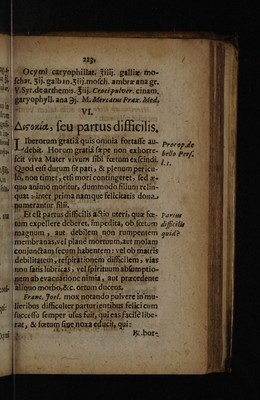 223.
Ocymi caryophillat. ʒiiij. galliæ mo-
schat. ʒij. galban. ʒiij. mosch. ambræ ana gr.
V. Syr. de arthemis. ʒiij. Croci pulver. cinam.
garyophyll. ana ℈j. M. Mercatus Prax. Med.
VI.
Δυςοκία, seu partus difficilis.
Liberorum gratiâ quis omnia fortasse au-
debit. Horum gratiâ sæpe non exhorre-
scit viva Mater vivum sibi fœtum exscindi.
Quod etsi durum sit pati, & plenum pericu-
lo, non timet, etsi mori contingeret, sed æ-
quo animo moritur, dummodo filium relin-
quat, inter prima namque felicitatis dona
numerantur filii.
Procop. de
bello Pers.
l. 1.
Et est partus difficilis actio uteri, quæ fœ-
tum expellere deberet, impedita, ob fœtum
magnum, aut debilem non rumpentem
membranas, vel planè mortuum, aut molam
conjunctam secum habentem: vel ob matris
debilitatem, respirationem difficilem, vias
non satis lubricas, vel spirituum absumptio-
nem ab evacuatione nimia, aut præcedente
aliquo morbo, &c. ortum ducens.
Partus
difficilis
quid?
Franc. Joel. mox notando pulvere in mu-
lieribus difficulter parturientibus felici cum
successu semper usus fuit, qui eas facilè libe-
rat, & fœtum sine noxa educit, qui:
℞. bor-